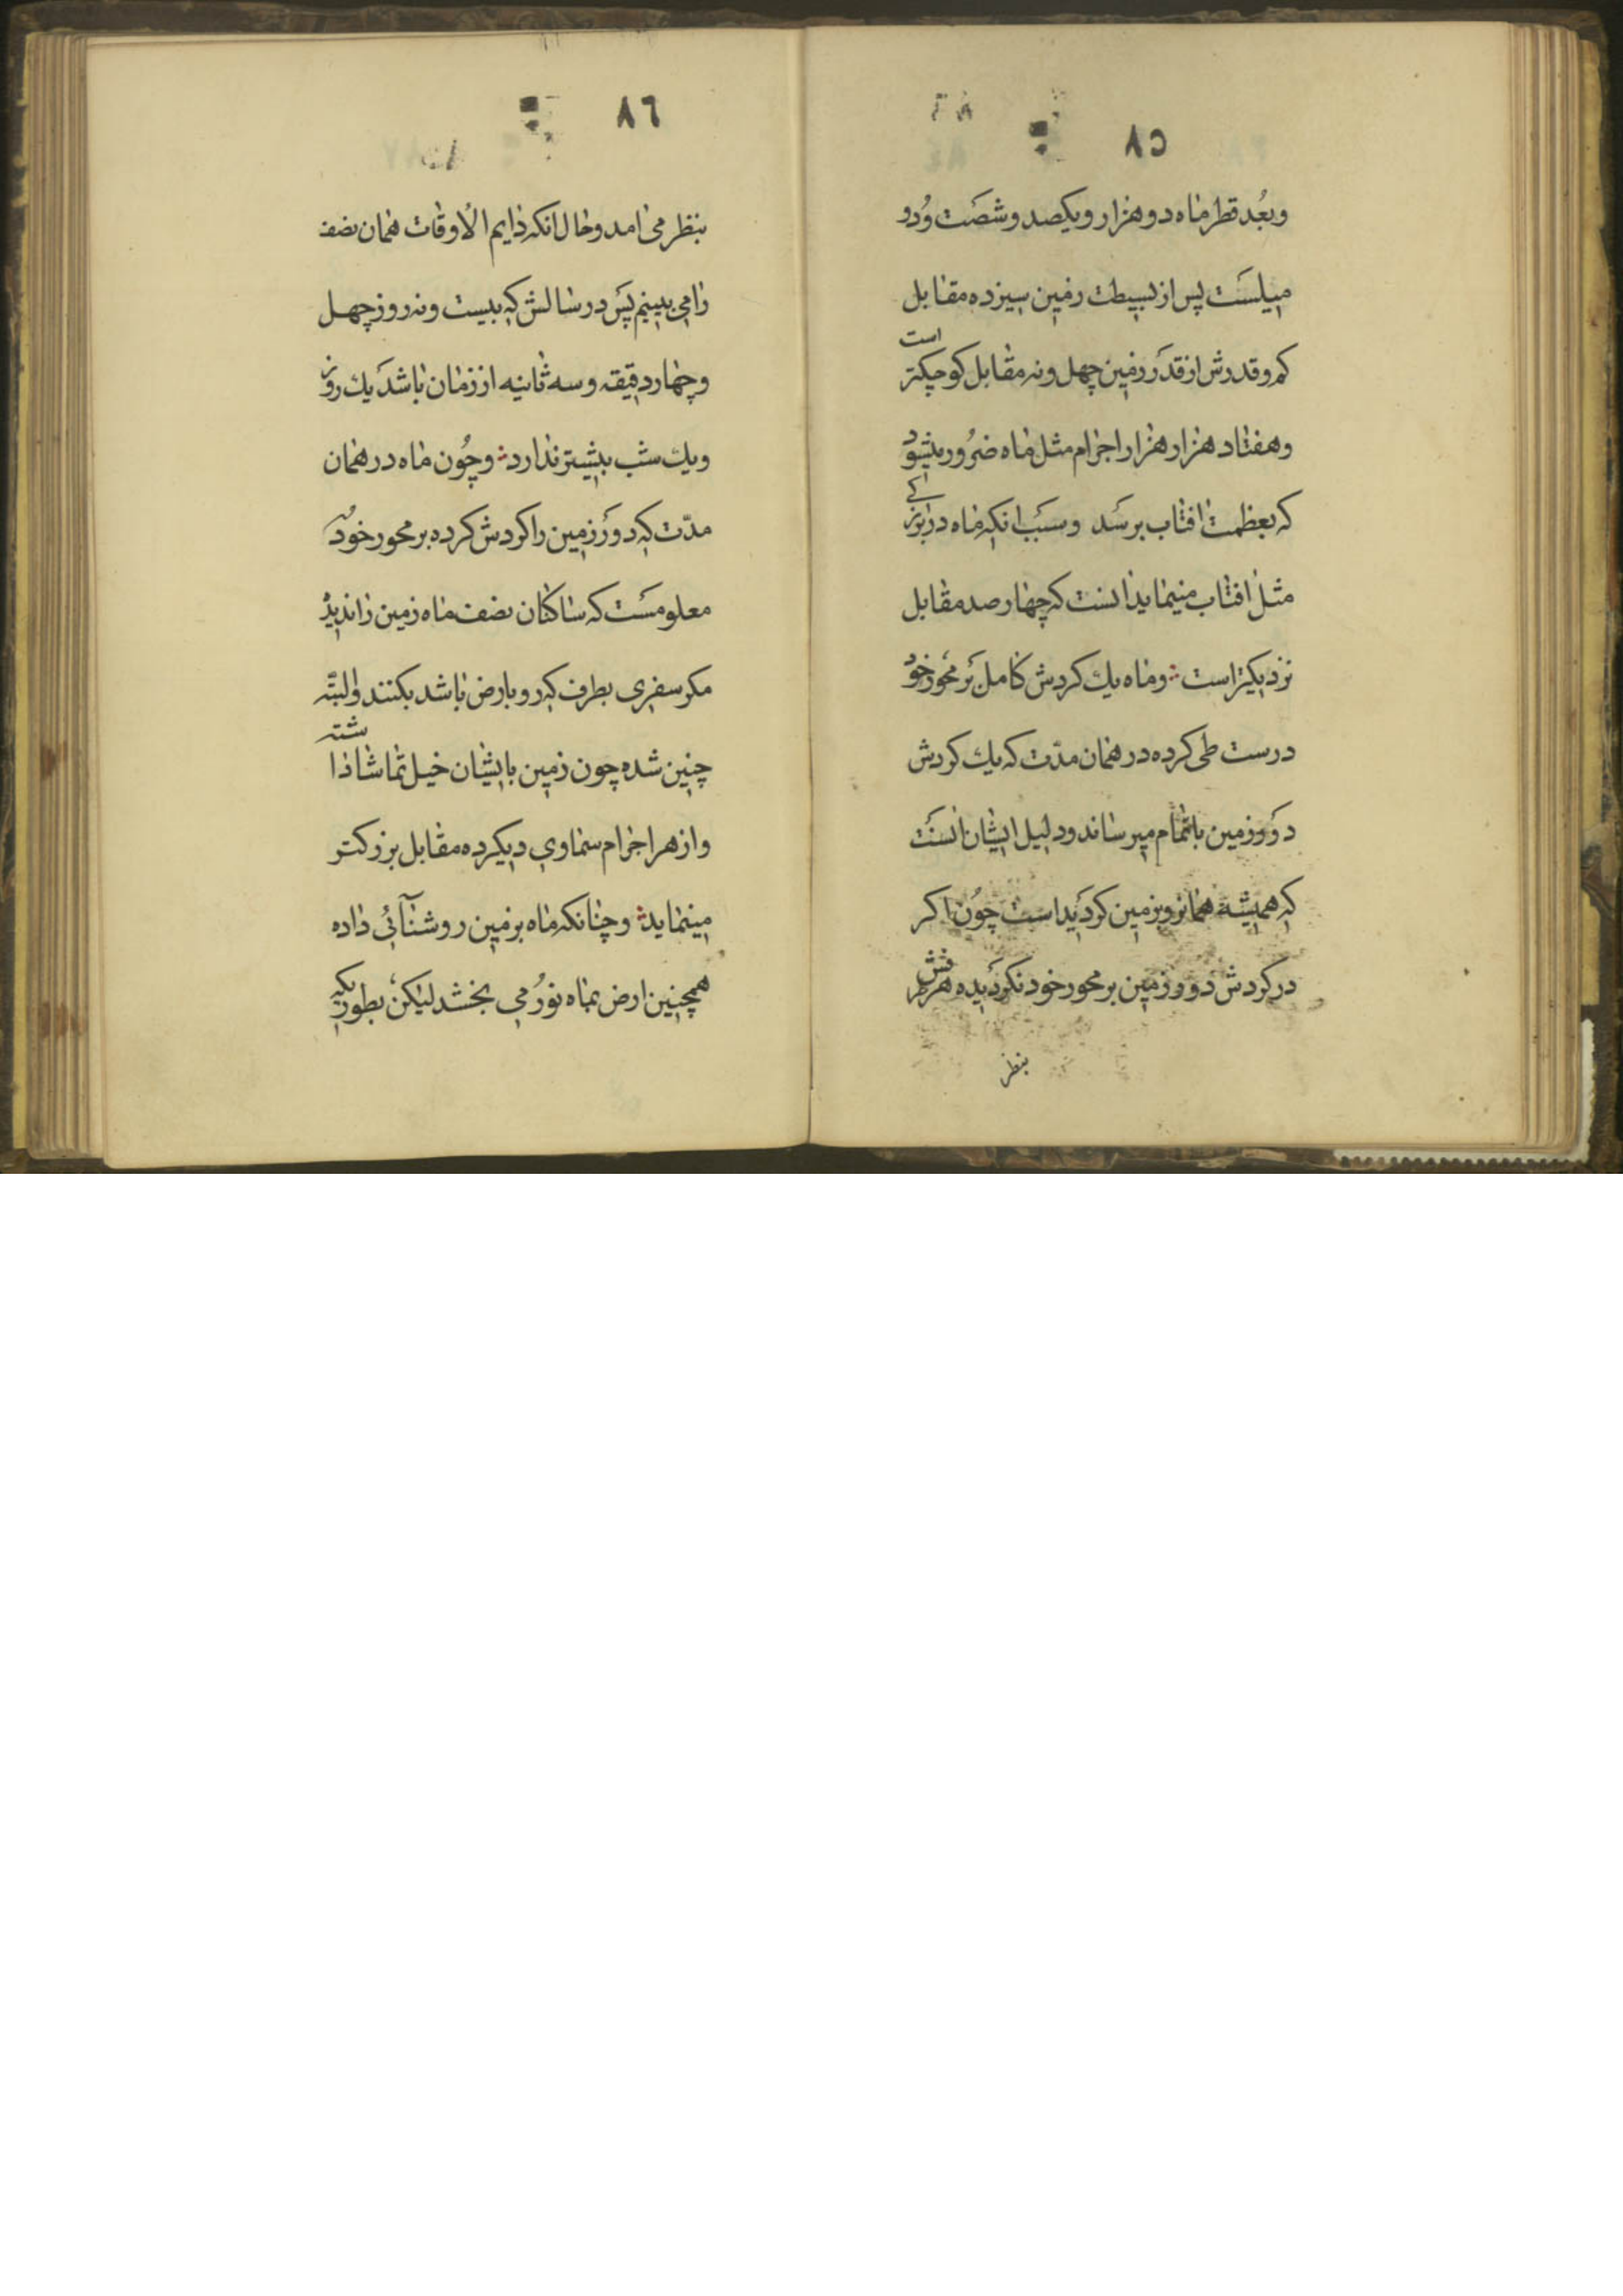 ٨٥
وبعُد قطر ماه دو هزار و یکصد و شصَت وُدو
میلسَت پس از بسیطت زمین سیزده مقابل
کم و قدرش از قدَر زمین چهل و نه مقابل کوچکتر است
و هفتاد هزار هزار اجرام مثل ماه ضرُور میشود
که بعظمت افتاب برسَد و سبَب انکه ماه در برابری
مثل افتاب مینماید انست که چهار صد مقابل
نزدیکتر است و ماه یك کردش کامل بَر محَور خود
درست طی کرده در همان مدّت که یك کردش
دَور زمین باتمام میرساند و دلیل ایشان انسَت
که همیشه همانرو بزمین کردَیدا ست چوُن اکر
در کردش دور زمین بر محور خود نکردَیده هر طرفش
بنظر
٨٦
بنظر می امد و حال انکه دایم الاوقات همان نصف
را می بینیم پسَ در سالش که بیست و نه روز چهل
و چهار دقیقه و سه ثانیه از زمان باشدَ یك روز
و یك شب بیشتر ندارد و چوُن ماه در همان
مدّت که دورَ زمین را کردش کرده بر محور خودُ
معلومسَت که ساکنان نصف ماه زمین را ندیدُ
مکر سفری بطرف که رو بارض باشد بکنند والبتّه
چنین شده چون زمین بایشان خیل تماشا داشته
و از هر اجرام سماوی دیکر ده مقابل بزرکتر
مینماید و چنانکه ماه بزمین روشنآئی داده
همچنین ارض بماه نورُ می بخشد لیکنُ بطوریکه